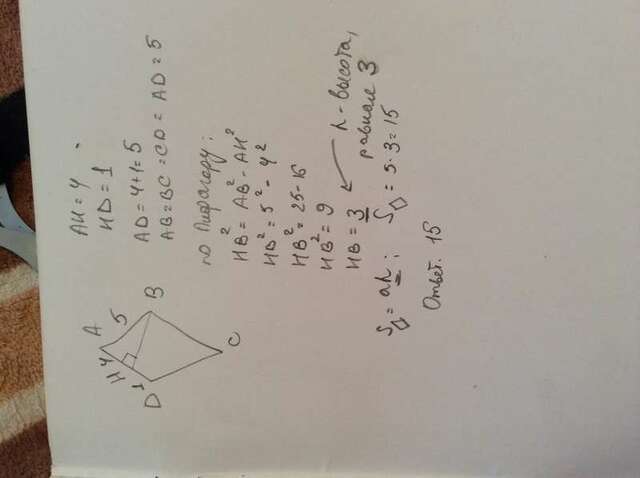 A
5
B
H
4
D
1
C
AH = 4
HD = 1
AD = 4+1=5
AB=BC=CD=AD=5
по Пифагору:
HB² = AB² - AH²
HB² = 5² - 4²
HB² = 25-16
HB² = 9
HB = 3
h - высота,
равная 3
S◊ = ah; S◊ = 5·3=15
Ответ. 15